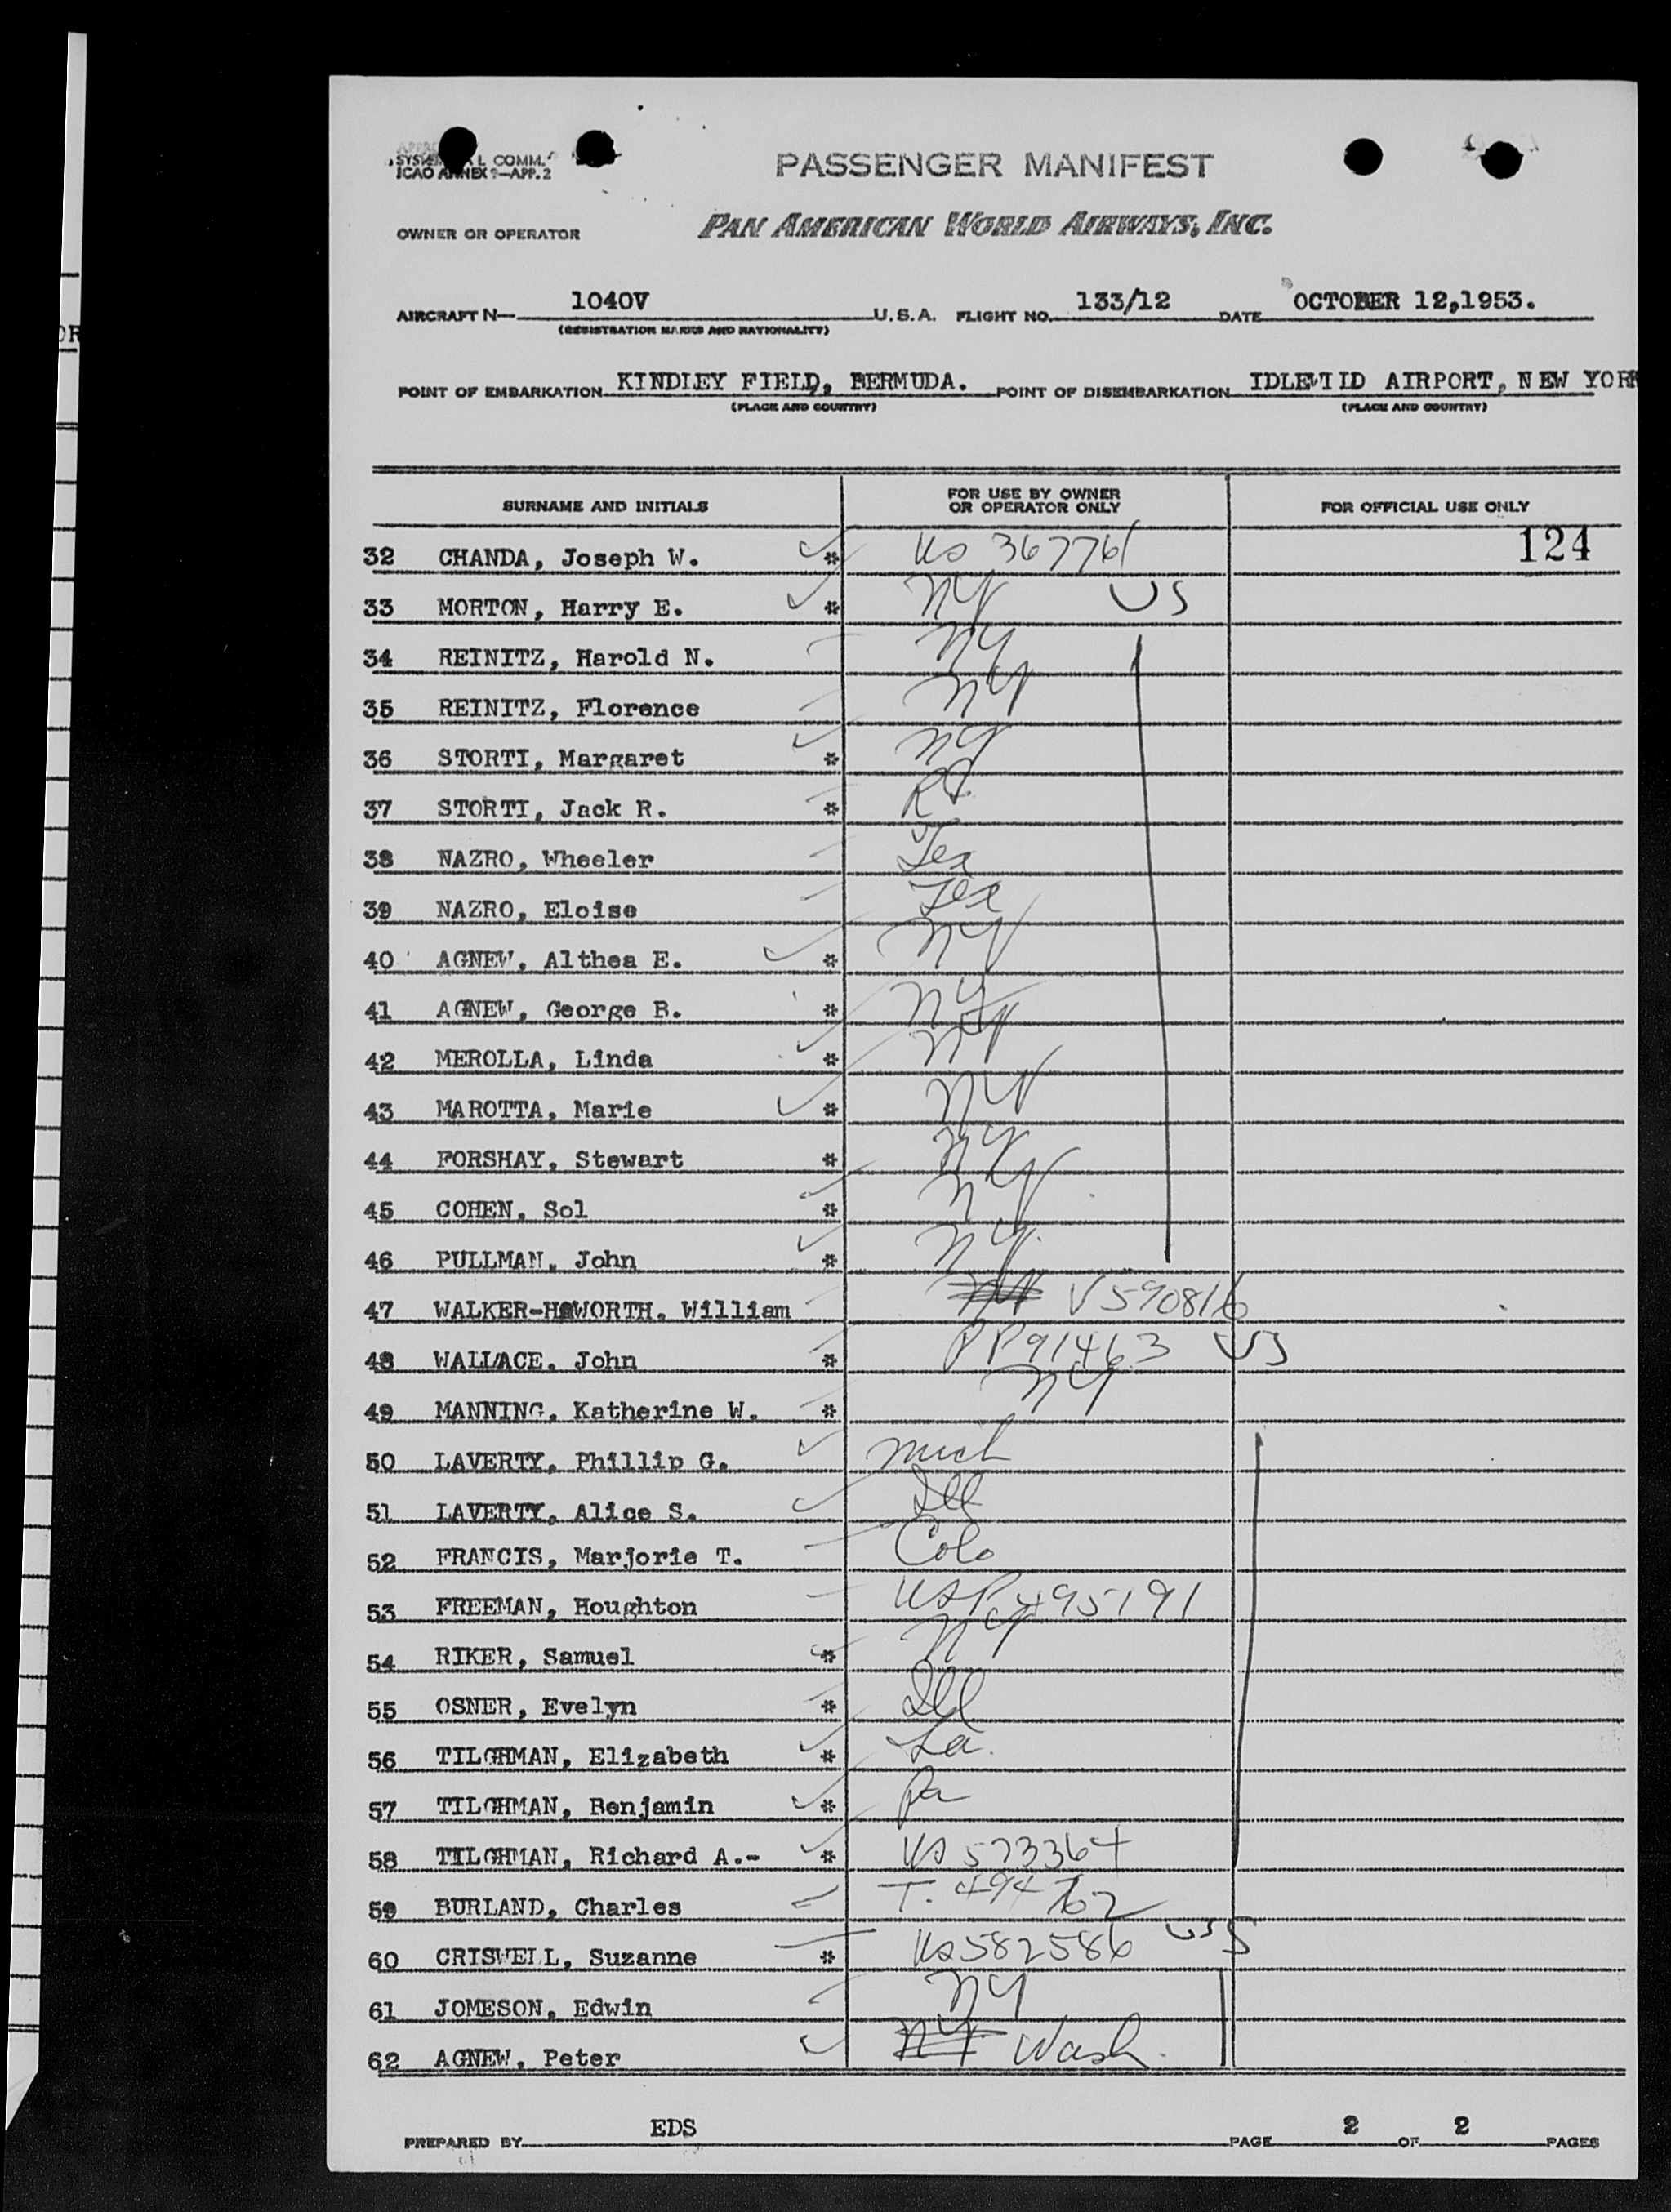 SYSTEM L COMM.
ICAO ANNEX 9—APP. 2
PASSENGER MANIFEST
OWNER OR OPERATOR PAN AMERICAN WORLD AIRWAYS, INC.
AIRCRAFT N— 1040V U.S.A. FLIGHT NO. 133/12 DATE OCTOBER 12,1953.
(REGISTRATION MARKS AND NATIONALITY)
POINT OF EMBARKATION KINDLEY FIELD, BERMUDA. POINT OF DISEMBARKATION IDLEWILD AIRPORT, NEW YORK
(PLACE AND COUNTRY) (PLACE AND COUNTRY)
SURNAME AND INITIALS FOR USE BY OWNER OR OPERATOR ONLY FOR OFFICIAL USE ONLY
32 CHANDA, Joseph W. * US 367761 124
33 MORTON, Harry E. * NY US
34 REINITZ, Harold N. NY
35 REINITZ, Florence NY
36 STORTI, Margaret * NY
37 STORTI, Jack R. * RI
38 NAZRO, Wheeler Tex
39 NAZRO, Eloise Tex
40 AGNEW, Althea E. * NY
41 AGNEW, George B. * NY
42 MEROLLA, Linda * NY
43 MAROTTA, Marie * NY
44 FORSHAY, Stewart * NY
45 COHEN, Sol * NY
46 PULLMAN, John * NY
47 WALKER-HAWORTH, William V590816
48 WALLACE, John * PP91463 US
49 MANNING, Katherine W. * NY
50 LAVERTY, Phillip G. Mich
51 LAVERTY, Alice S. Ill
52 FRANCIS, Marjorie T. Colo
53 FREEMAN, Houghton USP 495191
54 RIKER, Samuel * NY
55 OSNER, Evelyn * Ill
56 TILGHMAN, Elizabeth * La.
57 TILGHMAN, Benjamin * Pa
58 TILGHMAN, Richard A.- * US 573364
59 BURLAND, Charles T. 494762
60 CRISWELL, Suzanne * US582586 US
61 JOMESON, Edwin NY
62 AGNEW, Peter NY Wash.
PREPARED BY EDS PAGE 2 OF 2 PAGES